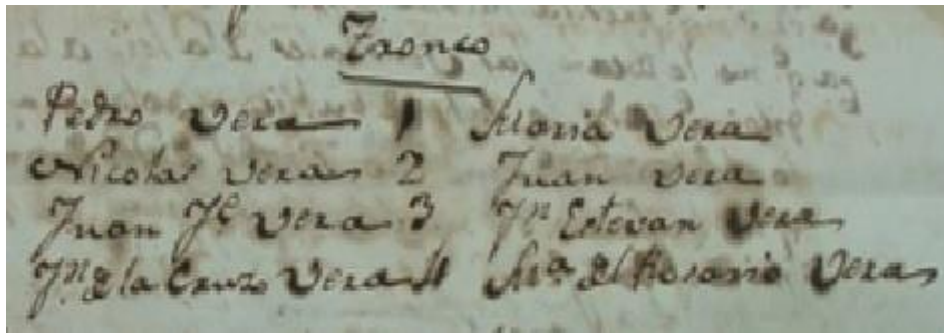 Tronco
Pedro Vera 1 Maria Vera
Nicolas Vera 2 Juan Vera
Juan Jᵉ Vera 3 Jⁿ Estevan Vera
Jⁿ de la Cruz Vera 4 Mᵃ del Rosario Vera